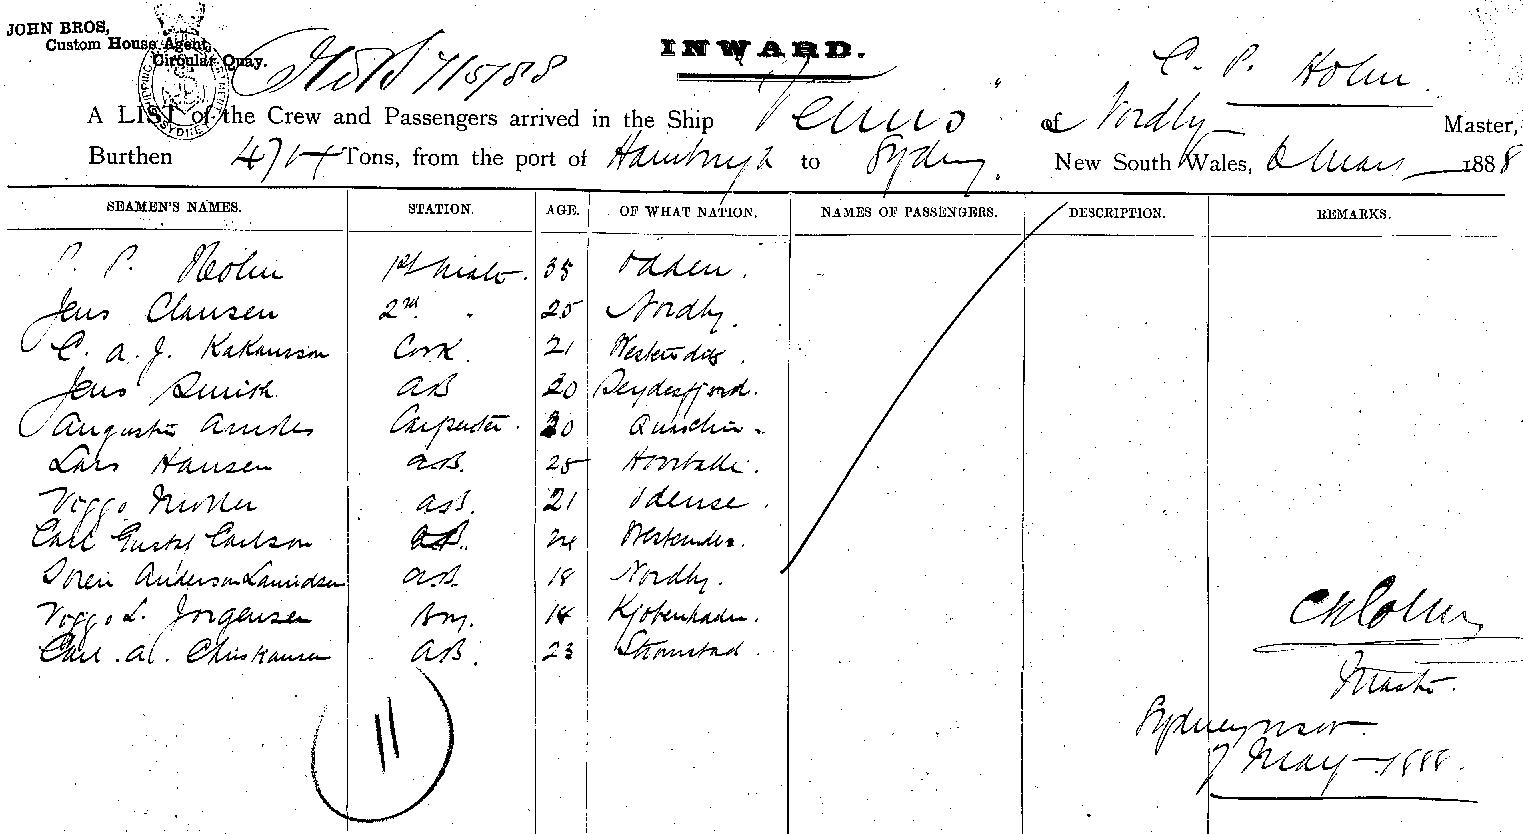 JOHN BROS,
Custom House Agent,
Circular Quay.
7/5/88
INWARD.
C. P. Holm
A LIST of the Crew and Passengers arrived in the Ship "Venus" of Nordby Master,
Burthen Tons, from the port of Hamburgh to Sydney. New South Wales, 1888
SEAMEN'S NAMES. STATION. AGE. OF WHAT NATION. NAMES OF PASSENGERS. DESCRIPTION. REMARKS.
P. P. Holm 1st Mate. 35 Odden.
Jens Clausen 2nd " 25 Nordby.
C. A. J. Cook. 21
Jens Smith AB 20 Seydesfjord.
Carpenter. 20
Lars Hansen AB. 25
Viggo Moller AB. 21 Odense.
Carl Gustaf Carlson AB.
Soren Anderson Lauridsen AB. 18 Nordby.
Viggo L. Jorgensen Boy. Kjobenhavn.
Carl. A. Christiansen AB. 23 Stromstad.
11
Master.
Sydney NSW
7 May 1888.